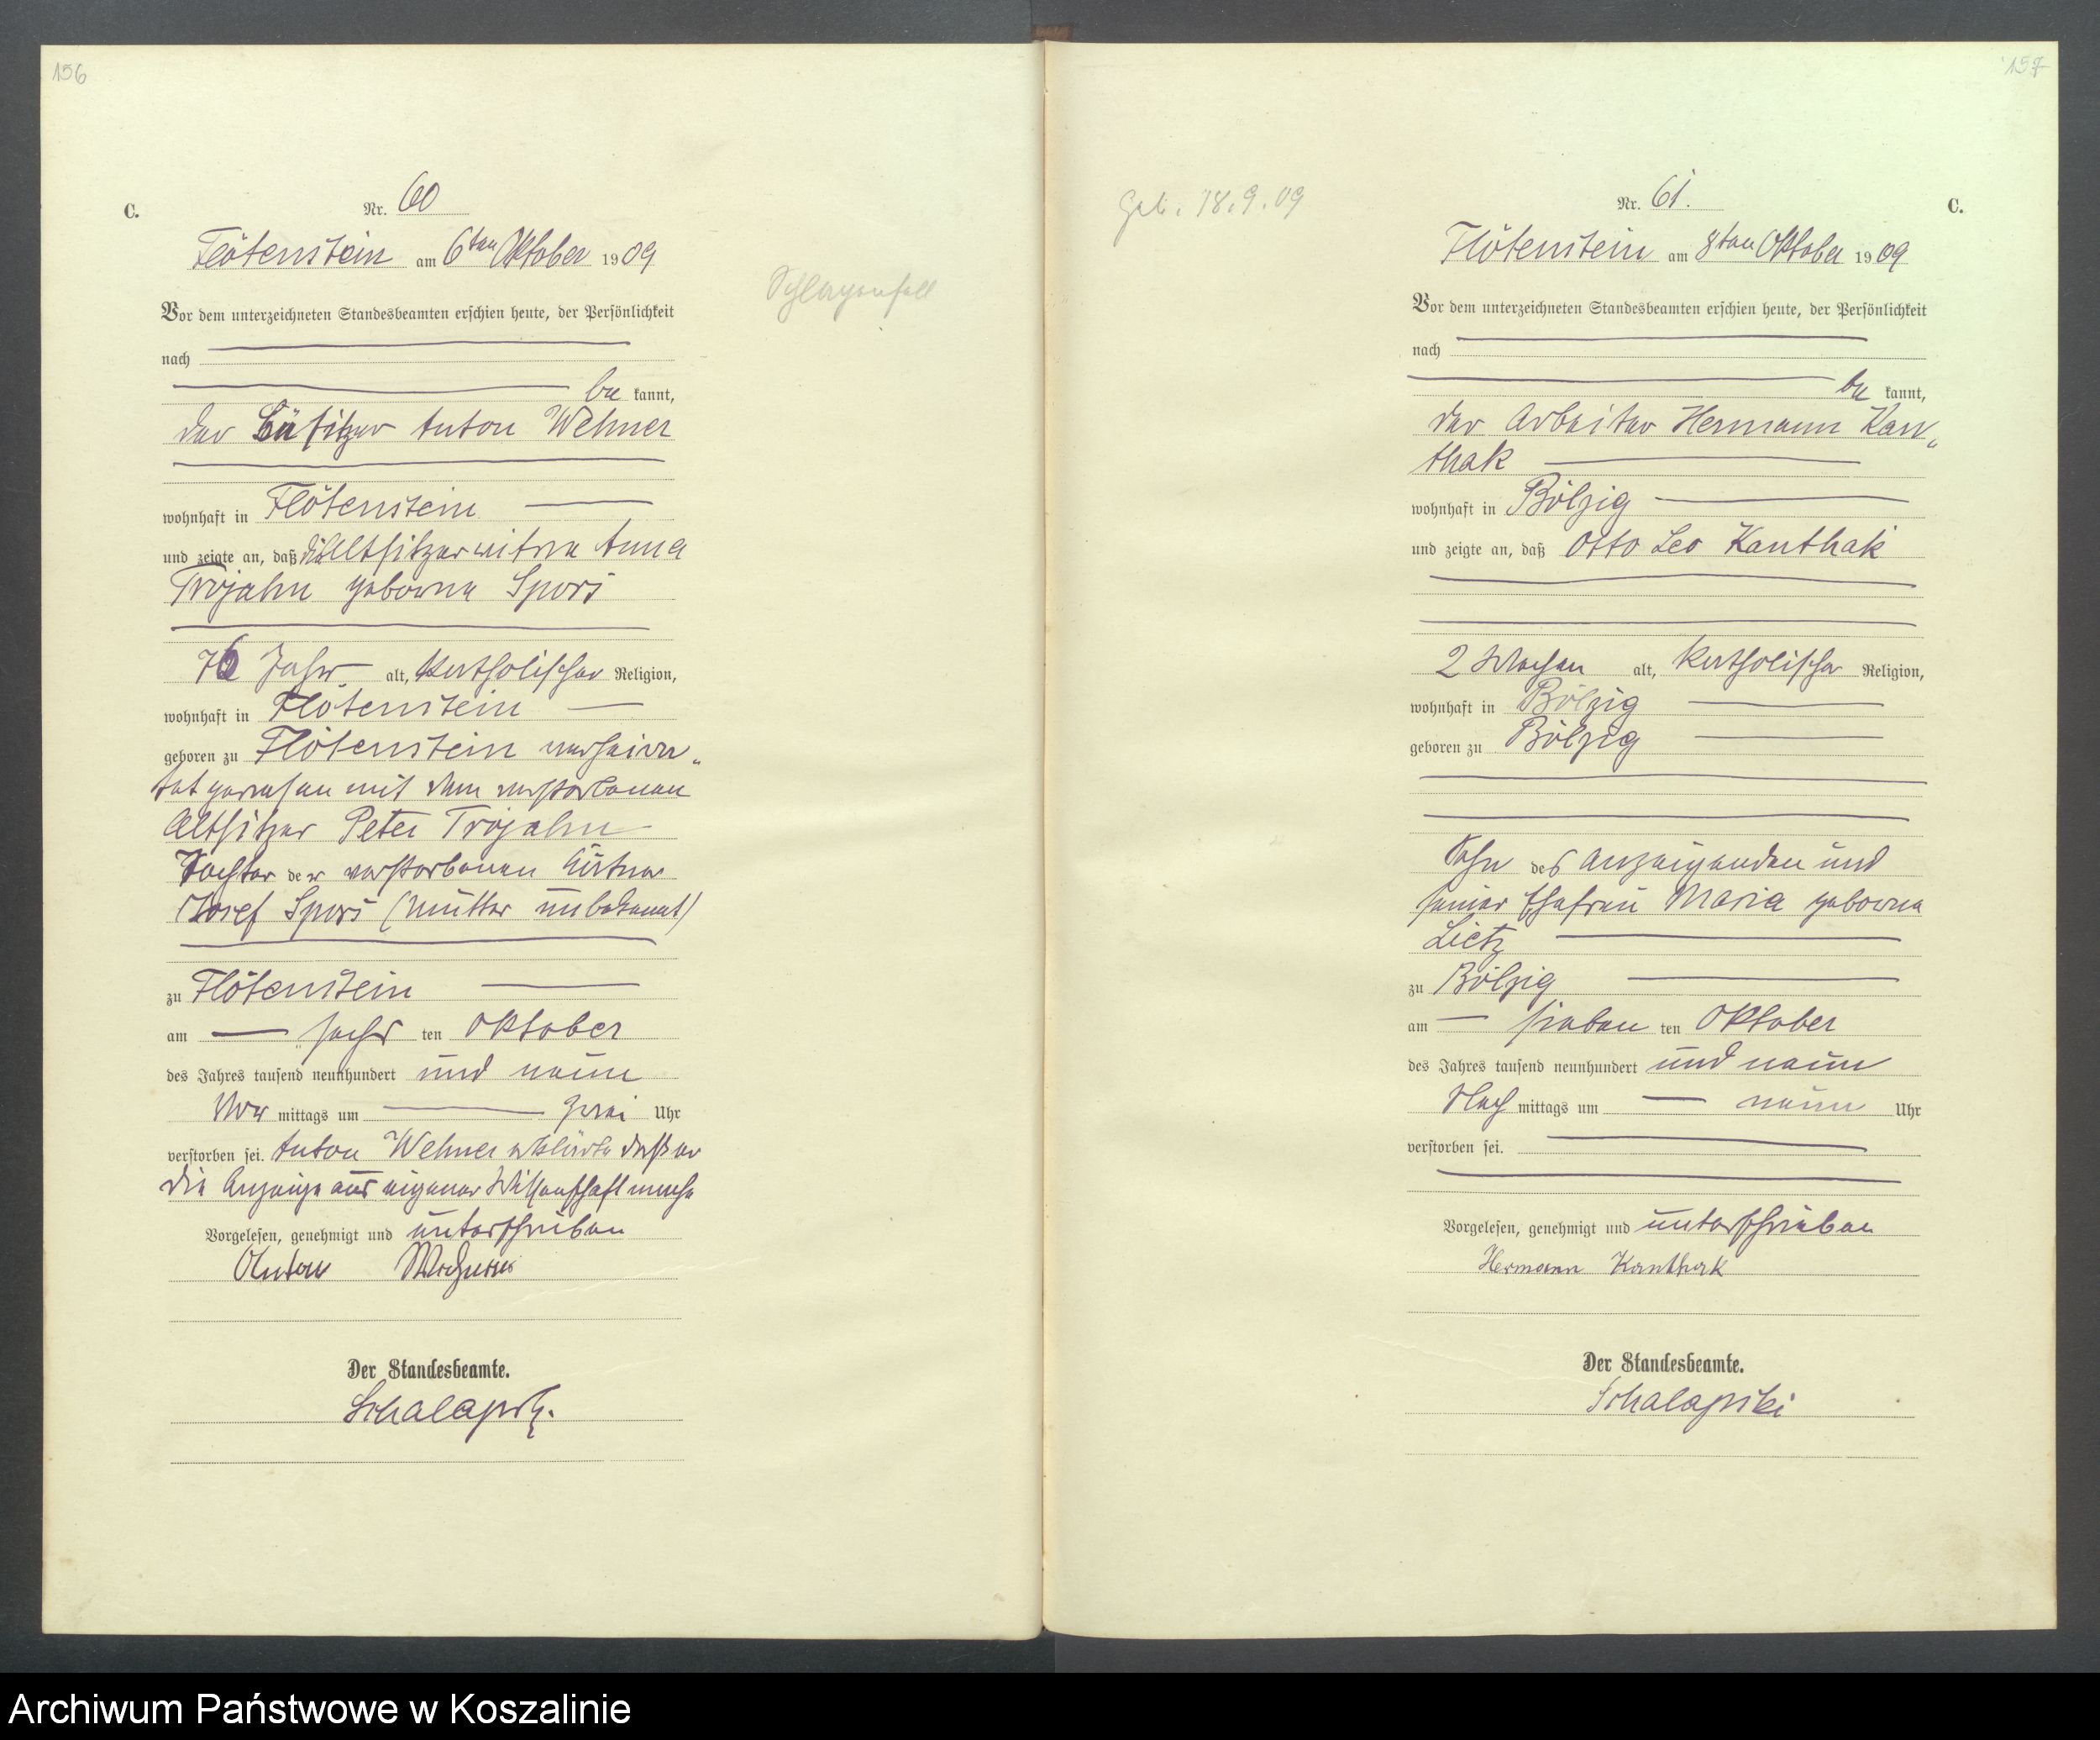 156
C.
Nr. 60
Flötenstein am 6ten Oktober 1909
Schlaganfall
Vor dem unterzeichneten Standesbeamten erschien heute, der Persönlichkeit
nach
be kannt,
der Besitzer Anton Wehner
wohnhaft in Flötenstein
und zeigte an, daß die Altsitzerwitwe Anna
Trojahn geborne Spors
76 Jahr alt, katholischer Religion,
wohnhaft in Flötenstein
geboren zu Flötenstein verheira„
tet gewesen mit dem verstorbenen
Altsitzer Peter Trojahn
Tochter der verstorbenen
Josef Spors (Mutter unbekannt)
zu Flötenstein
am sechs ten Oktober
des Jahres tausend neunhundert und neun
Vor mittags um zwei Uhr
verstorben sei. Anton Wehner erklärte daß er
die Anzeige aus eigener Wissenschaft mache
Vorgelesen, genehmigt und unterschrieben
Anton Wehner
Der Standesbeamte.
Schalapski
157
Geb. 18.9.09
Nr. 61.
C.
Flötenstein am 8ten Oktober 1909
Vor dem unterzeichneten Standesbeamten erschien heute, der Persönlichkeit
nach
be kannt,
der Arbeiter Hermann Kan„
thak
wohnhaft in Bölzig
und zeigte an, daß Otto Leo Kanthak
2 Wochen alt, katholischer Religion,
wohnhaft in Bölzig
geboren zu Bölzig
Sohn des Anzeigenden und
seiner Ehefrau Maria geborne
Lietz
zu Bölzig
am sieben ten Oktober
des Jahres tausend neunhundert und neun
Nach mittags um neun Uhr
verstorben sei.
Vorgelesen, genehmigt und unterschrieben
Hermann Kanthak
Der Standesbeamte.
Schalapski
Archiwum Państwowe w Koszalinie